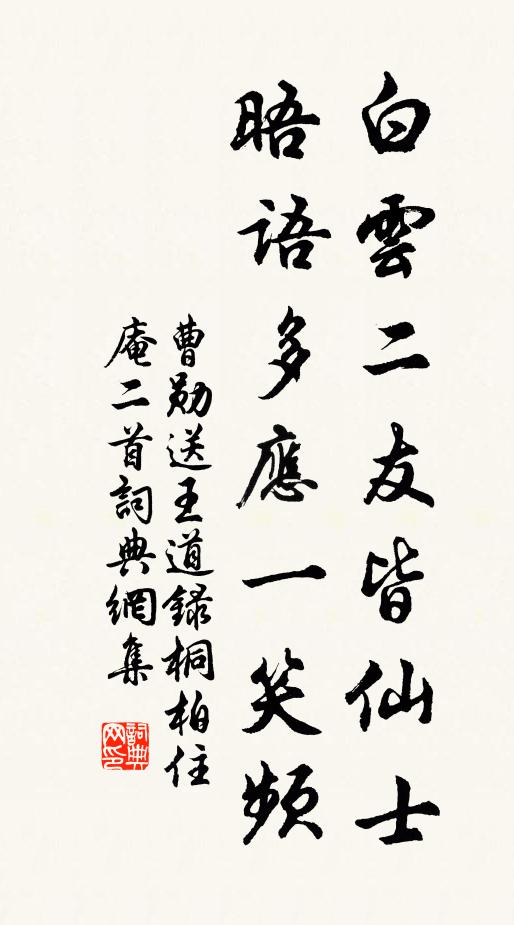 白雲二友皆仙士
晤語多應一笑頻
曹勛送王道錄桐柏住
庵二首詞典網集
詞典
网印